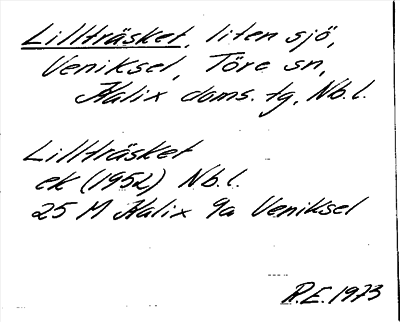 Lillträsket, liten sjö,
Veniksel, Töre sn,
Kalix doms. tg, Nb.l.
Lillträsket
ek (1952) Nb.l.
25 M Kalix 9a Veniksel
R.E. 1973